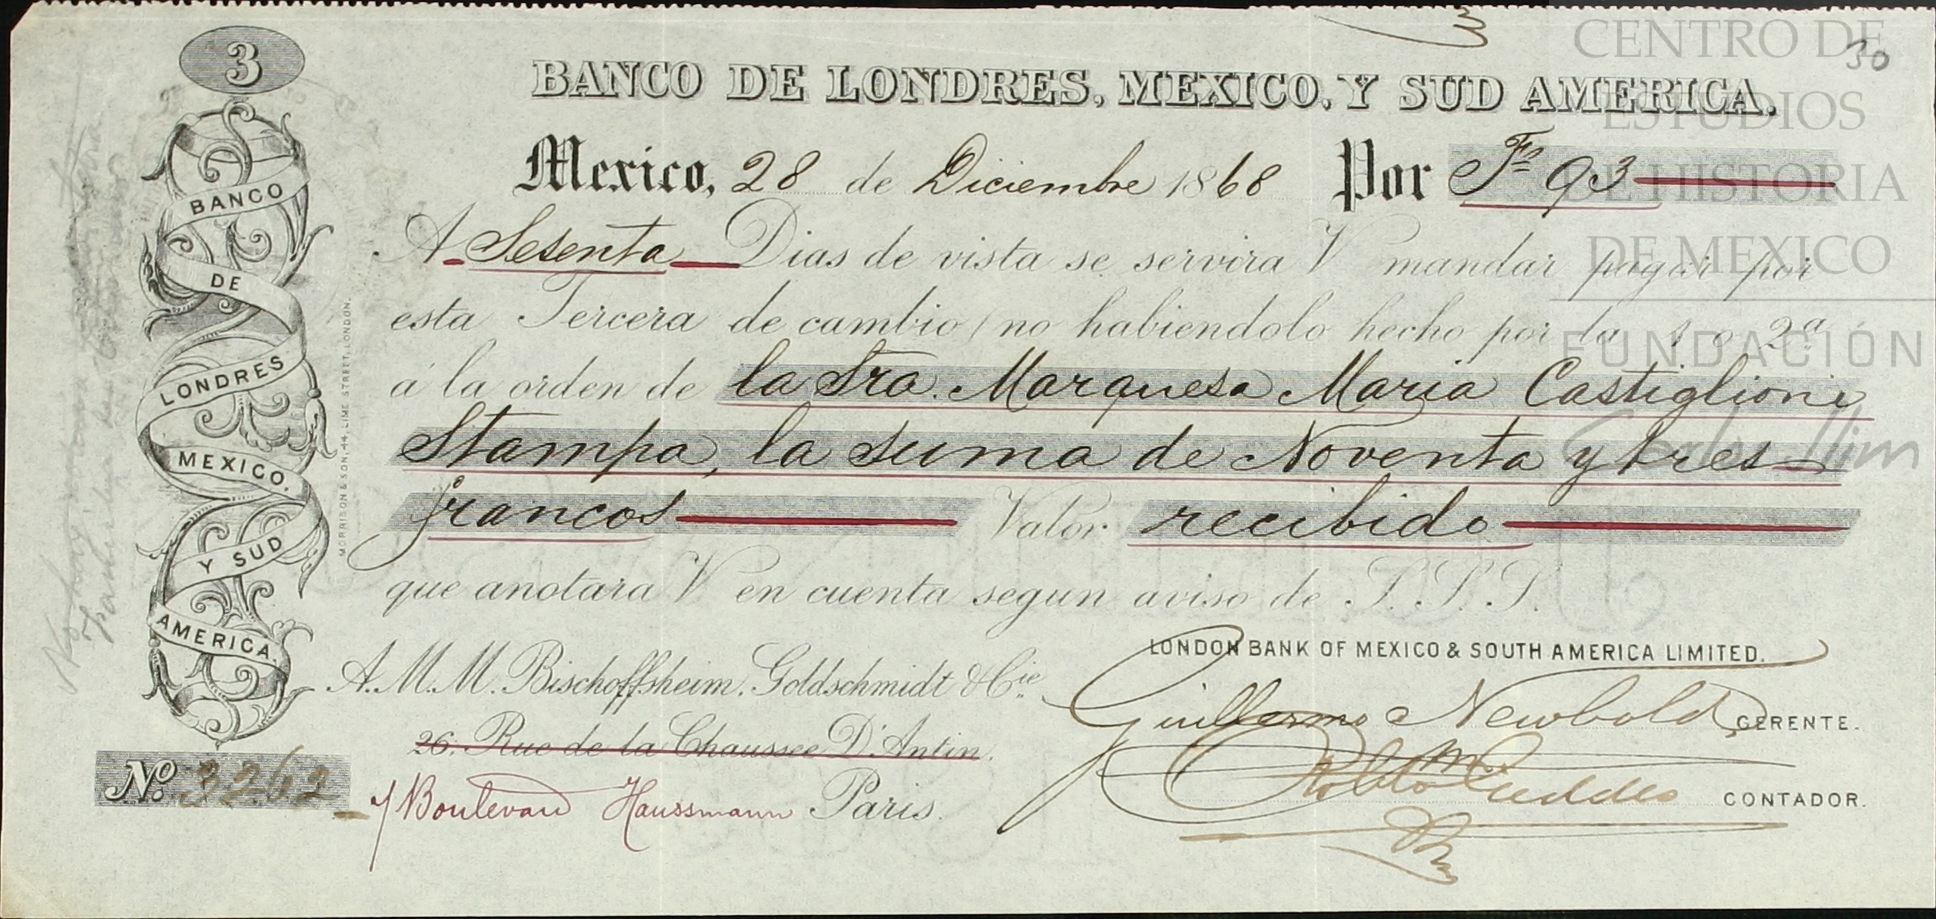 3
30
BANCO DE LONDRES, MEXICO, Y SUD AMERICA.
Mexico, 28 de Diciembre 1868 Por Fs 93
A Sesenta Dias de vista se servira V mandar pagar por
esta Tercera de cambio (no habiendolo hecho por la 1 o 2a
á la orden de la Sra. Marquesa Maria Castiglioni
Stampa, la suma de Noventa y tres
francos Valor recibido
que anotara V en cuenta segun aviso de S.S.S.
LONDON BANK OF MEXICO & SOUTH AMERICA LIMITED.
A.M.M. Bischoffsheim, Goldschmidt & Cie
Guillermo Newbold GERENTE.
26, Rue de la Chaussee D'Antin.
CONTADOR.
Boulevard Haussmann Paris.
No. 3262
BANCO
DE
LONDRES
MEXICO.
Y SUD
AMERICA.
MORRISON & SON, 44, LIME STREET, LONDON.
CENTRO DE
ESTUDIOS
DE HISTORIA
DE MEXICO
FUNDACIÓN
Carlos Slim